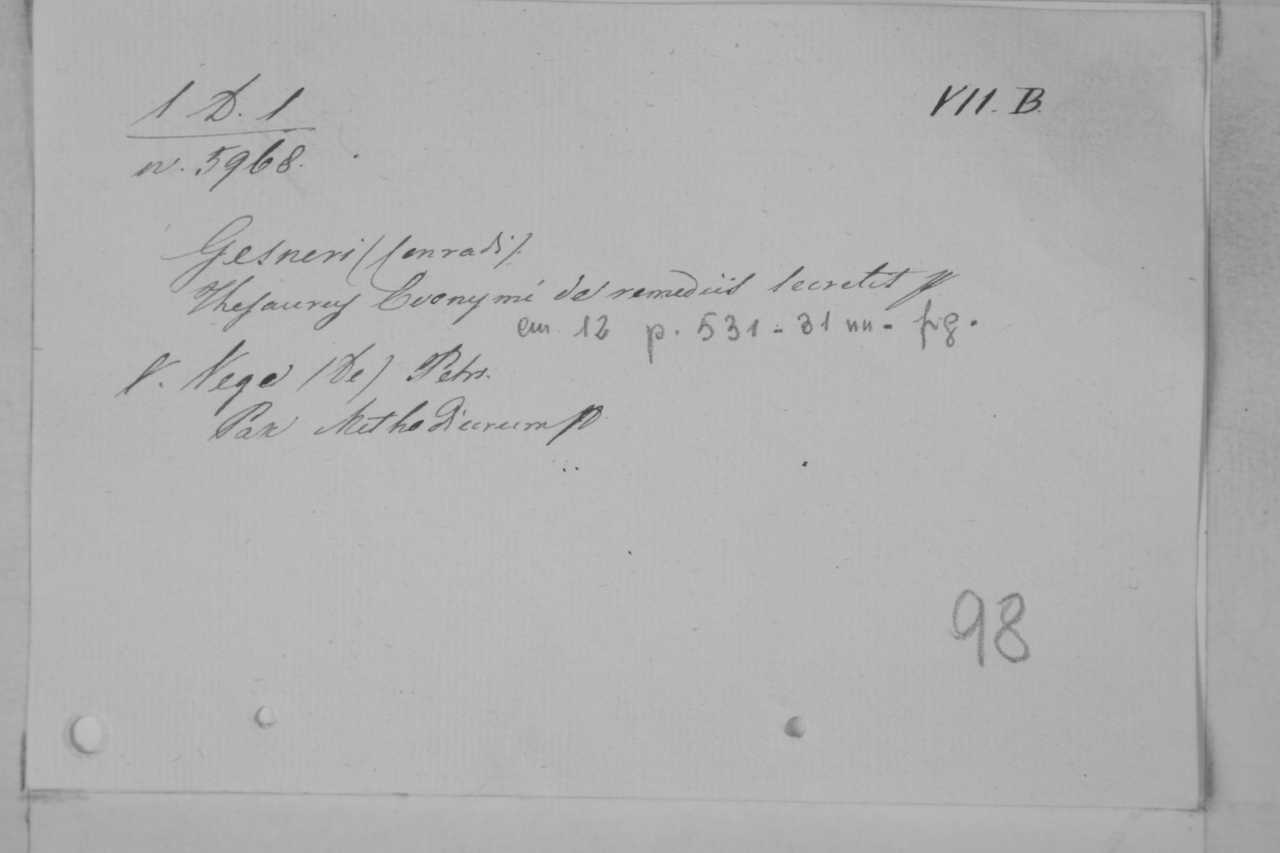 1 D. 1
VII. B.
n. 5968.
Gesneri (Conradi).
Thesaurus Evonymi de remediis secretis p
em 12 p. 531 - 31 nn - fig.
V. Vega (De) Petr.
Pax Methodicorum p
98